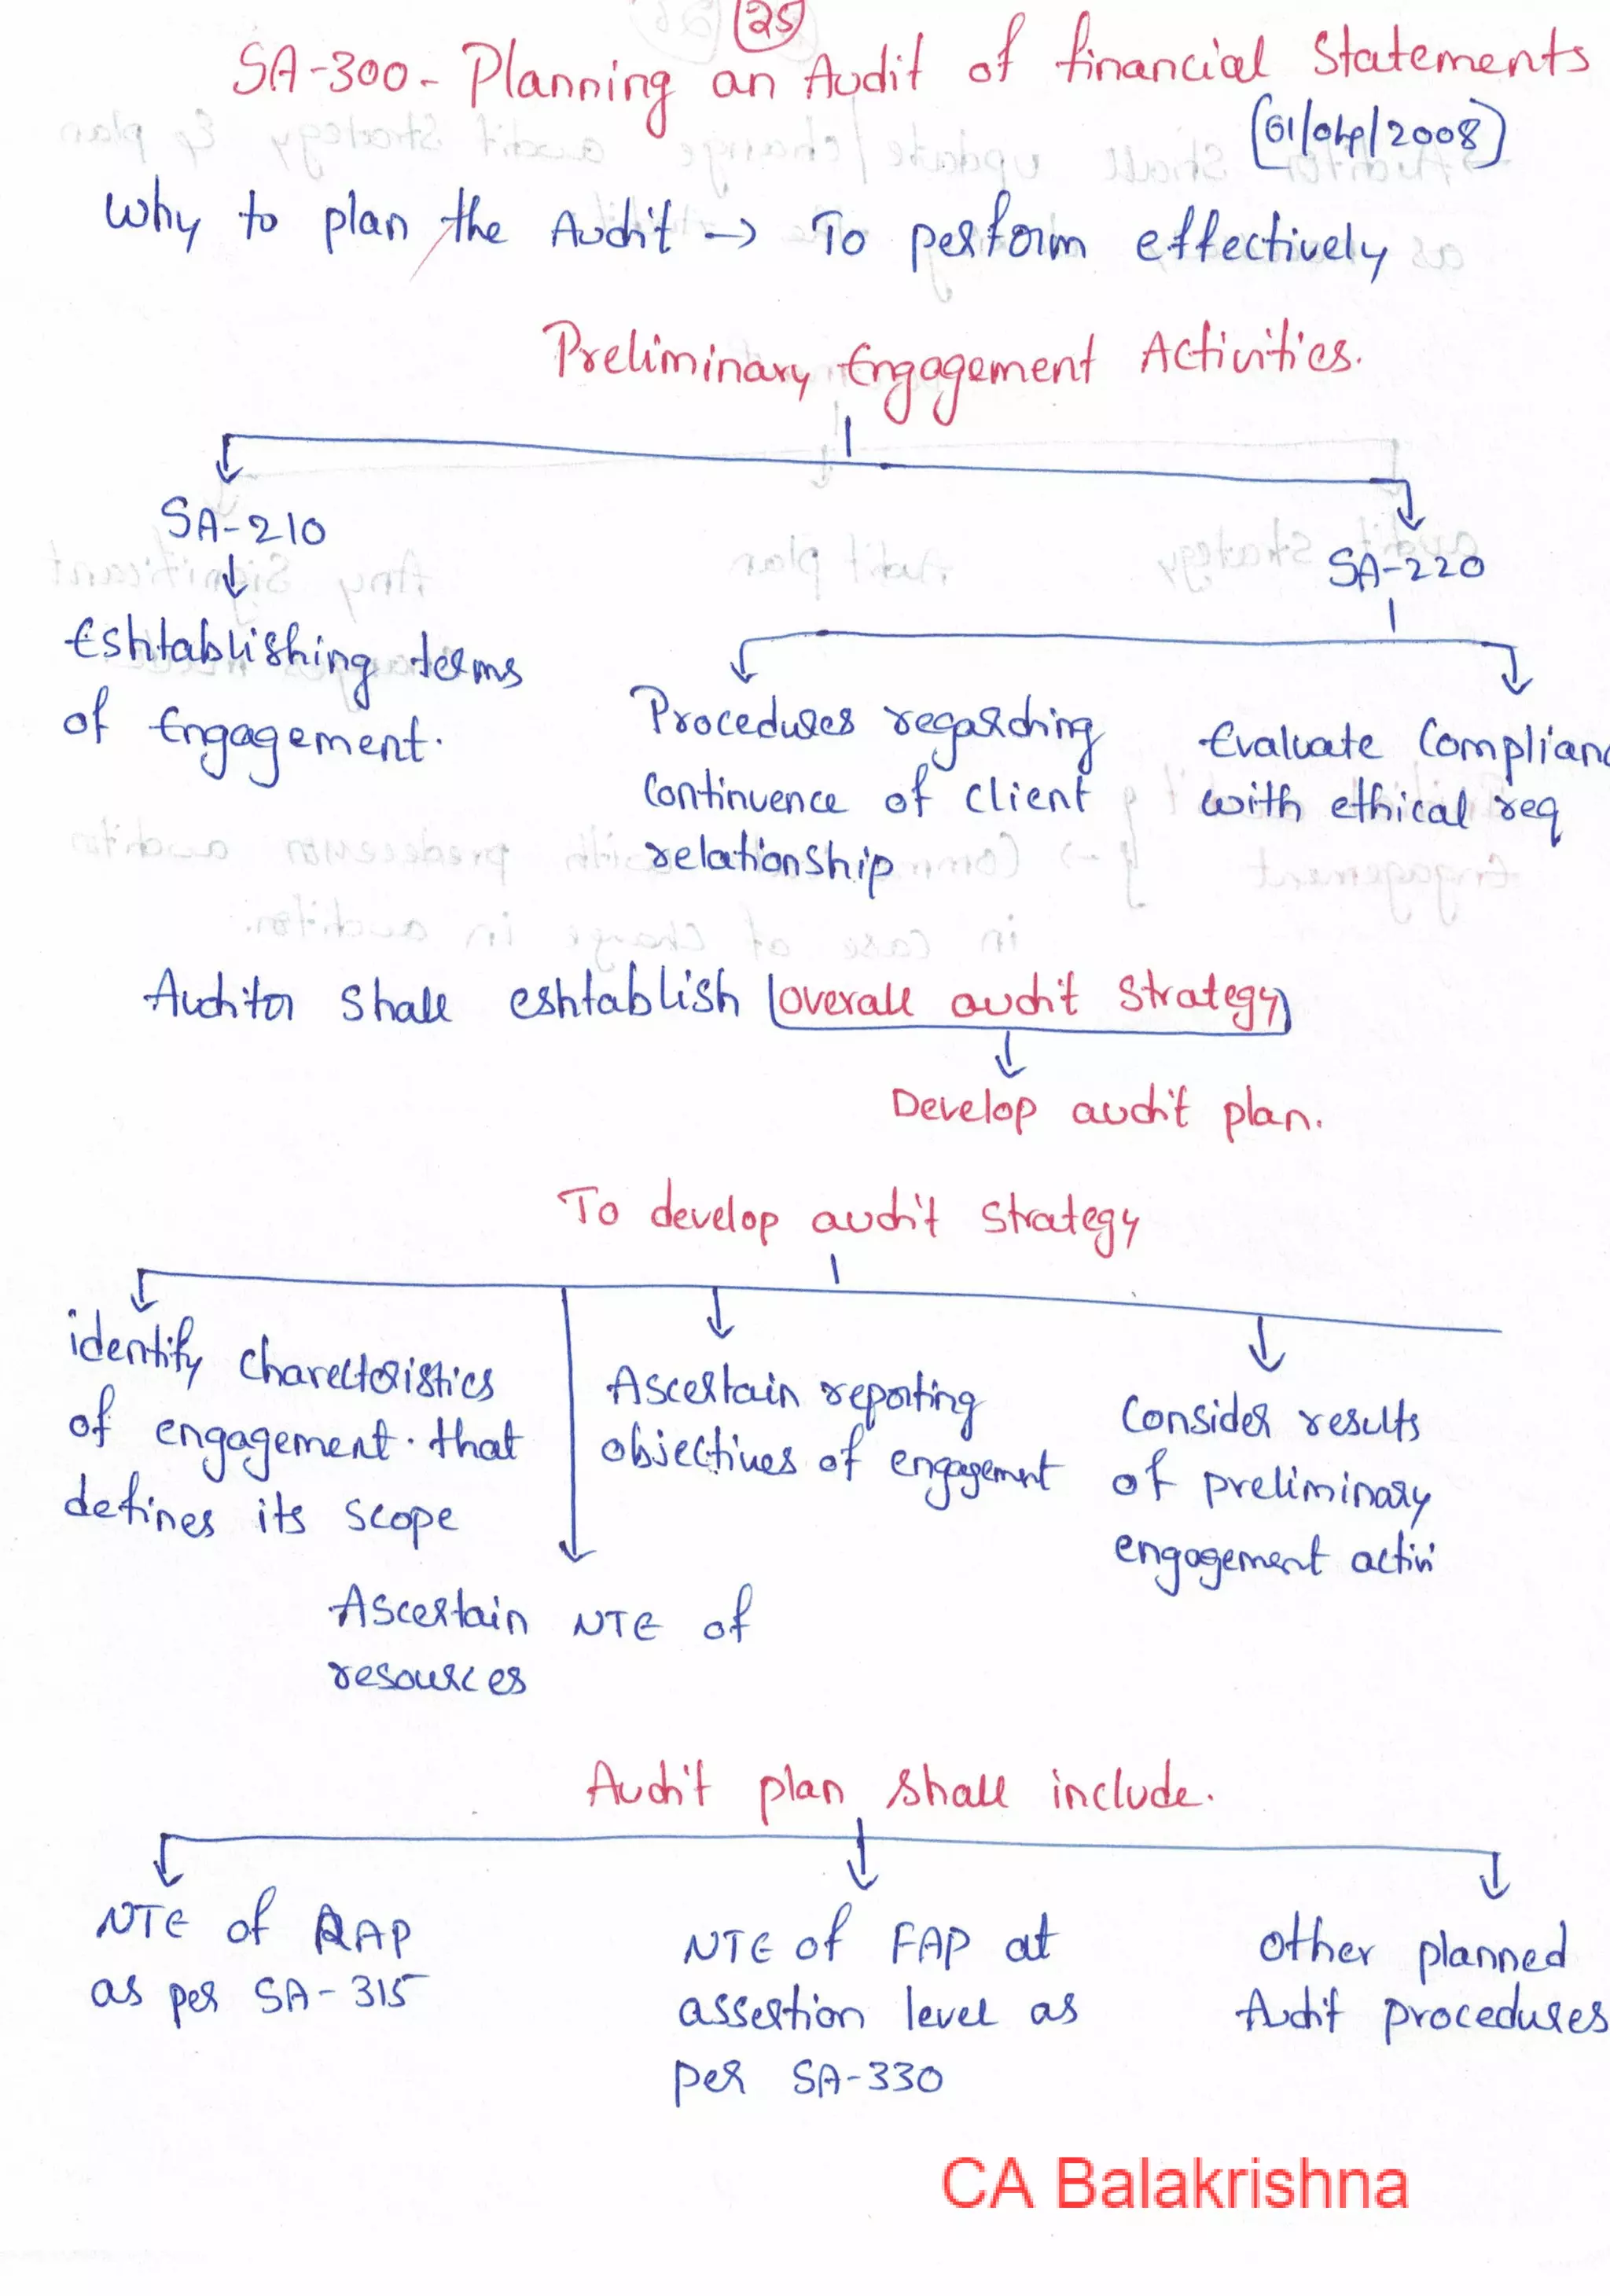 25
SA-300- Planning an Audit of financial Statements
(01/04/2008)
Why to plan the Audit → To perform effectively
Preliminary Engagement Activities.
SA-210
SA-220
Eshtablishing terms
of Engagement.
Procedures regarding
continuence of client
relationship
Evaluate Complianc
with ethical req
Auditor Shall eshtablish overall audit Strategy
Develop audit plan.
To develop audit strategy
identify charecteristics
of engagement. that
defines its scope
Ascertain reporting
objectives of engagement
Consider results
of preliminary
engagement activi
Ascertain NTE of
resources
Audit plan shall include.
NTE of RAP
as per SA-315
NTE of FAP at
assertion level as
per SA-330
other planned
Audit procedures
CA Balakrishna